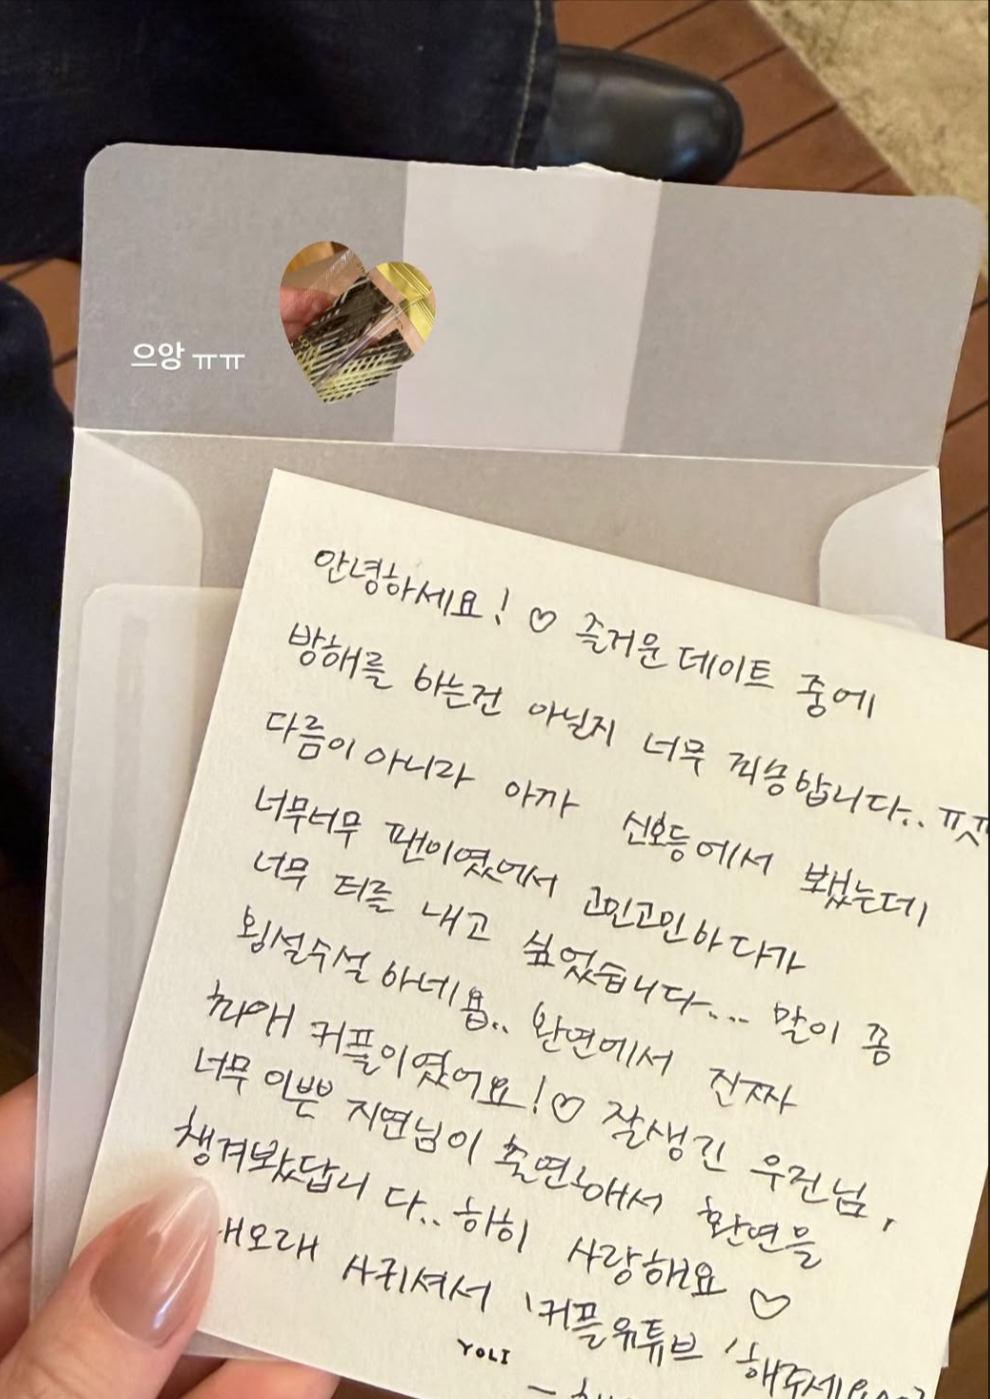 으앙 ㅠㅠ
안녕하세요! ♡ 즐거운 데이트 중에
방해를 하는건 아닐지 너무 죄송합니다.. ㅠ
다름이 아니라 아까 신호등에서 뵀는데
너무너무 팬이였어서 고민고민하다가
너무 티를 내고 싶었습니다... 말이 좀
횡설수설 하네욥.. 환연에서 진짜
최애 커플이였어요!♡ 잘생긴 우진님,
너무 이쁜 지연님이 출연해서 환연을
챙겨봤답니다.. 히히 사랑해요 ♡
래오래 사귀셔서 '커플유튜브' 해주세요
YOLI